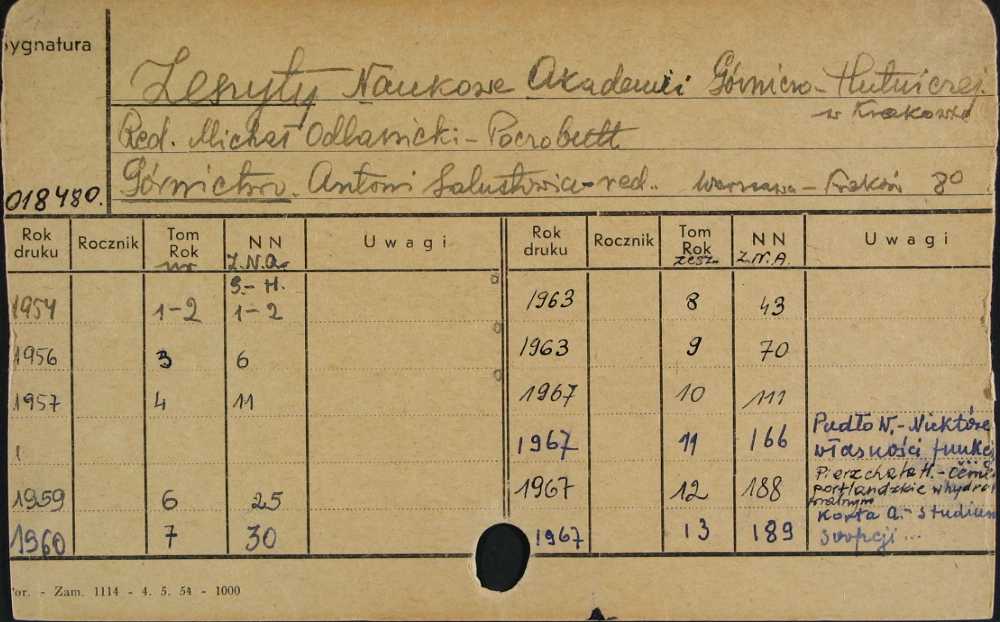 Sygnatura
Zeszyty Naukowe Akademii Górniczo-Hutniczej
w Krakowie
Red. Michał Odlanicki-Poczobutt
Górnictwo. Antoni Sałustowicz-red. Warszawa-Kraków 80
018480.
Rok druku Rocznik Tom Rok NN Uwagi Rok druku Rocznik Tom Rok NN Uwagi
nr Z.N.A. zesz. Z.N.A.
G.-H.
1954 1-2 1-2 1963 8 43
1956 3 6 1963 9 70
1957 4 11 1967 10 111
1967 11 166 Pudło W.-Niektóre
własności funkcj
1959 6 25 1967 12 188 Pierzchała H.-Cemen
portlandzkie w hydrot
1960 7 30 1967 13 189 Korta A.-Studium
sorpcji...
or. - Zam. 1114 - 4. 5. 54 - 1000